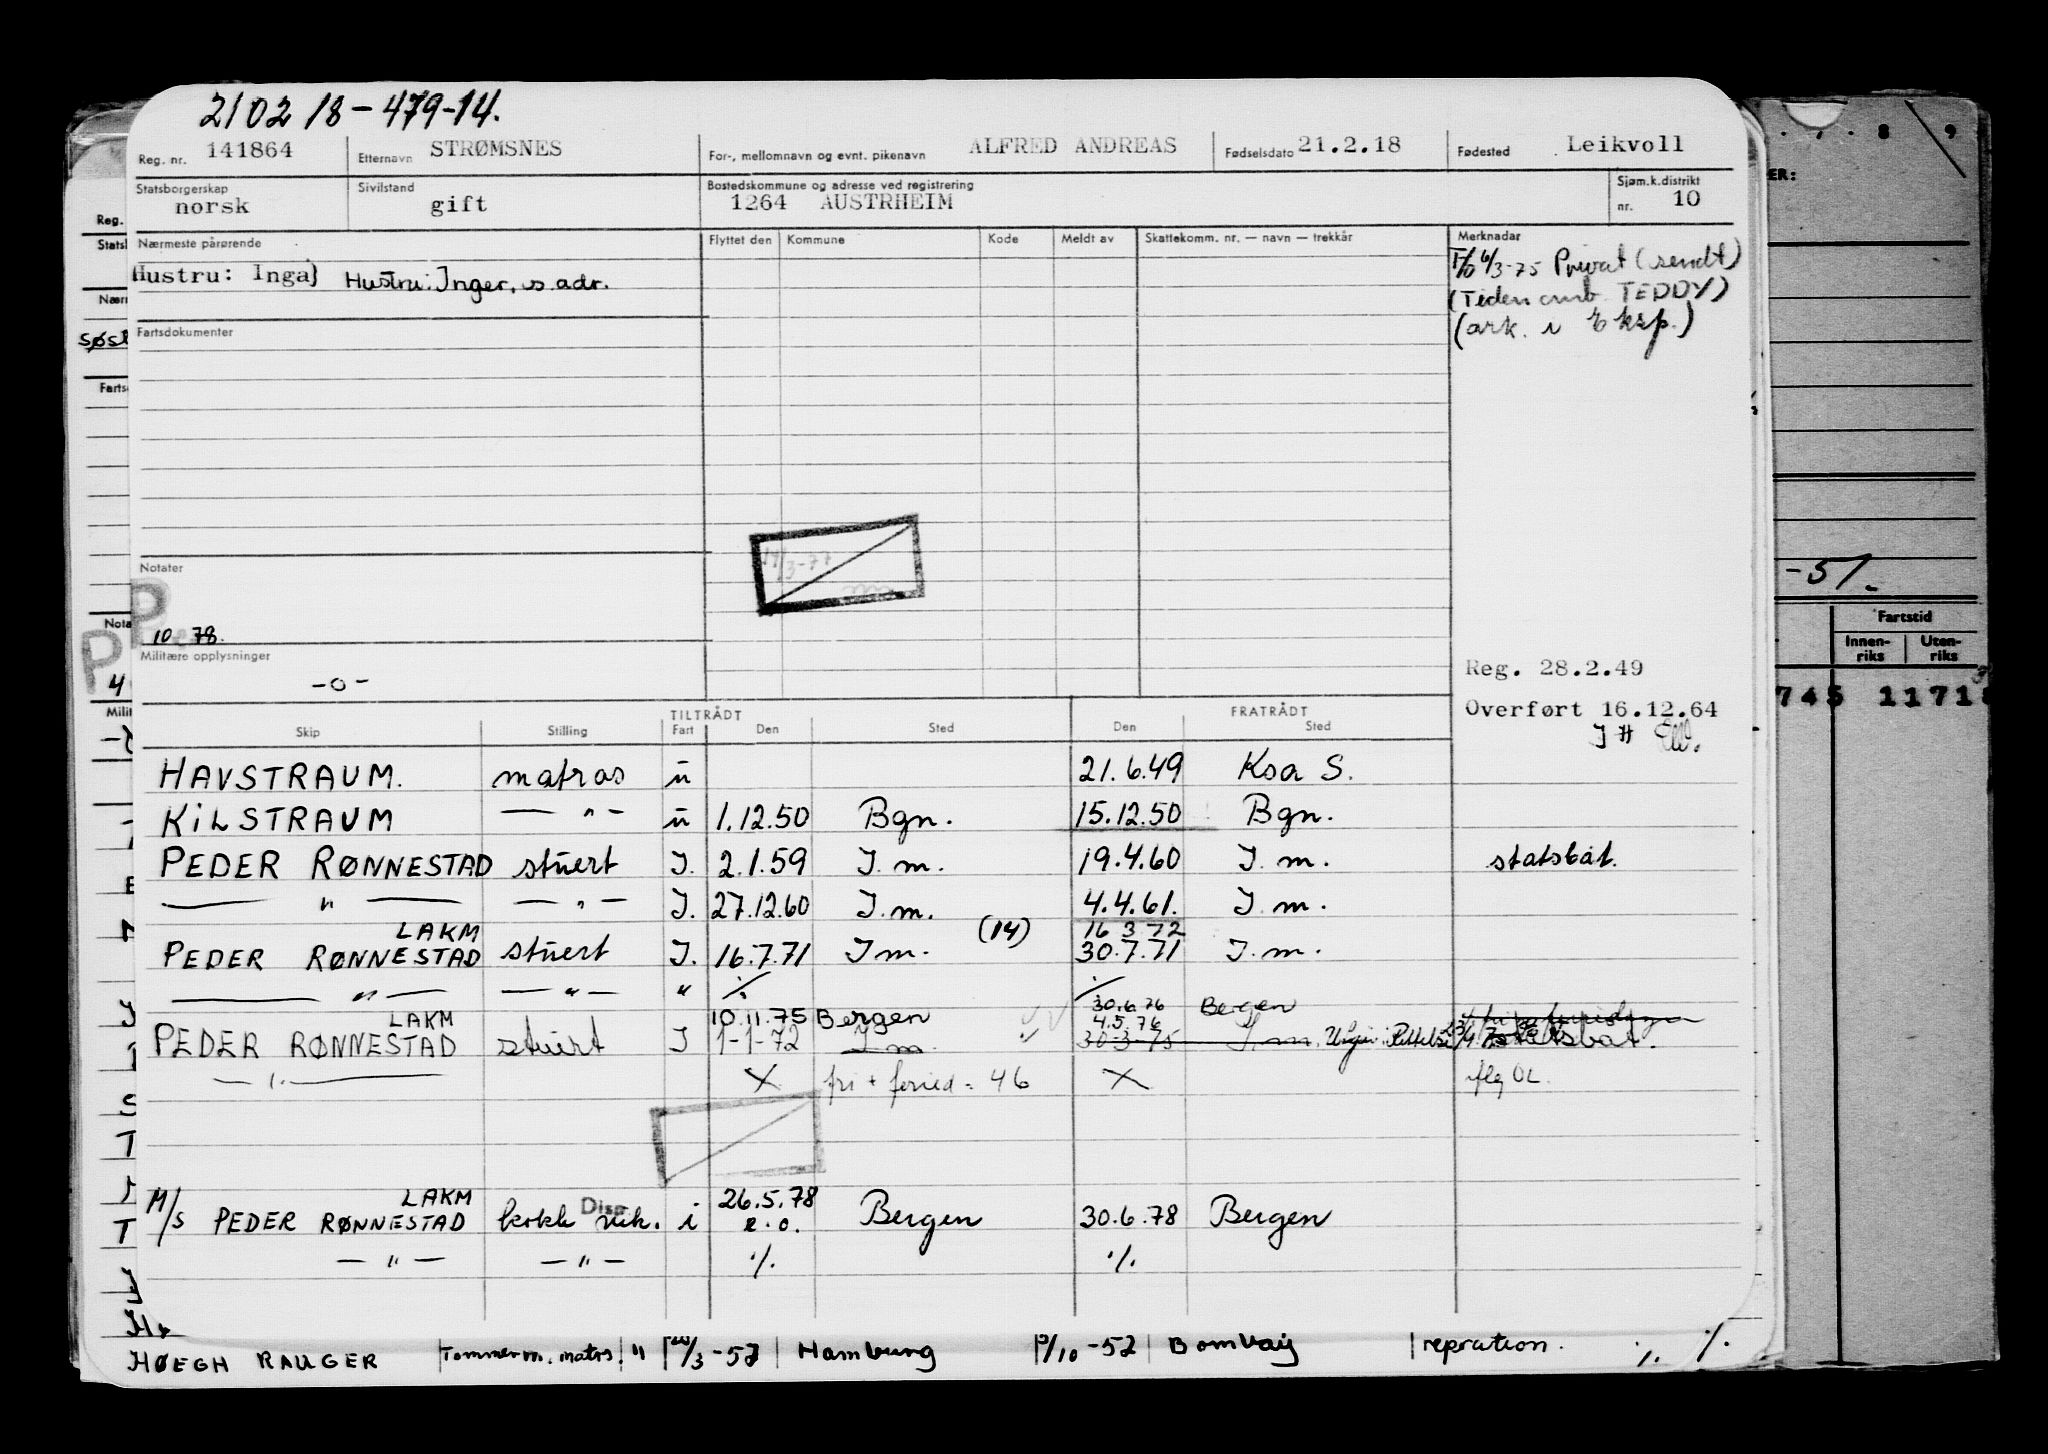 210218-479-14.
Reg. nr. 141864 Etternavn STRØMSNES For-, mellomnavn og evnt. pikenavn ALFRED ANDREAS Fødselsdato 21.2.18 Fødested Leikvoll
Statsborgerskap norsk Sivilstand gift Bostedskommune og adresse ved registrering 1264 AUSTRHEIM Sjøm.k.distrikt nr. 10
Nærmeste pårørende Flyttet den Kommune Kode Meldt av Skattekomm. nr. — navn — trekkår Merknadar
Hustru: Inga} Hustru: Inger, s. adr.
6/3-75 Privat (sendt)
(Tiden omb. TEDDY)
(ark. i eksp.)
Fartsdokumenter
Notater
10 78.
Militære opplysninger
-o-
Reg. 28.2.49
Overført 16.12.64
TILTRÅDT FRATRÅDT
Skip Stilling Fart Den Sted Den Sted
HAVSTRAUM. matros u 21.6.49 Ksa S.
KILSTRAUM — " — u 1.12.50 Bgn. 15.12.50 Bgn.
PEDER RØNNESTAD stuert I. 2.1.59 I. m. 19.4.60 I. m. statsbåt.
— " — — " — I. 27.12.60 I. m. 4.4.61. I. m.
LAKM (14) 16 3 72
PEDER RØNNESTAD stuert I. 16.7.71 I m. 30.7.71 I. m.
— " — — " — " ./. ./.
30.6.76 Bergen
LAKM 10.11.75 Bergen 4.5.76
PEDER RØNNESTAD stuert I 1-1-72 I m. 30-3-75 I. m. statsbåt.
— " — X fri + feried = 46 X
LAKM 26.5.78
M/S PEDER RØNNESTAD kokk vik. Disp i e.o. Bergen 30.6.78 Bergen
— " — — " — ./. ./.
HØEGH RAUGER Tømmerm. matrs. " /3-52 Hamburg /10-52 Bombay repration. ./. ./.
Reg.
Nota
-51.
Fartstid
Innen-riks Uten-riks
745 11718